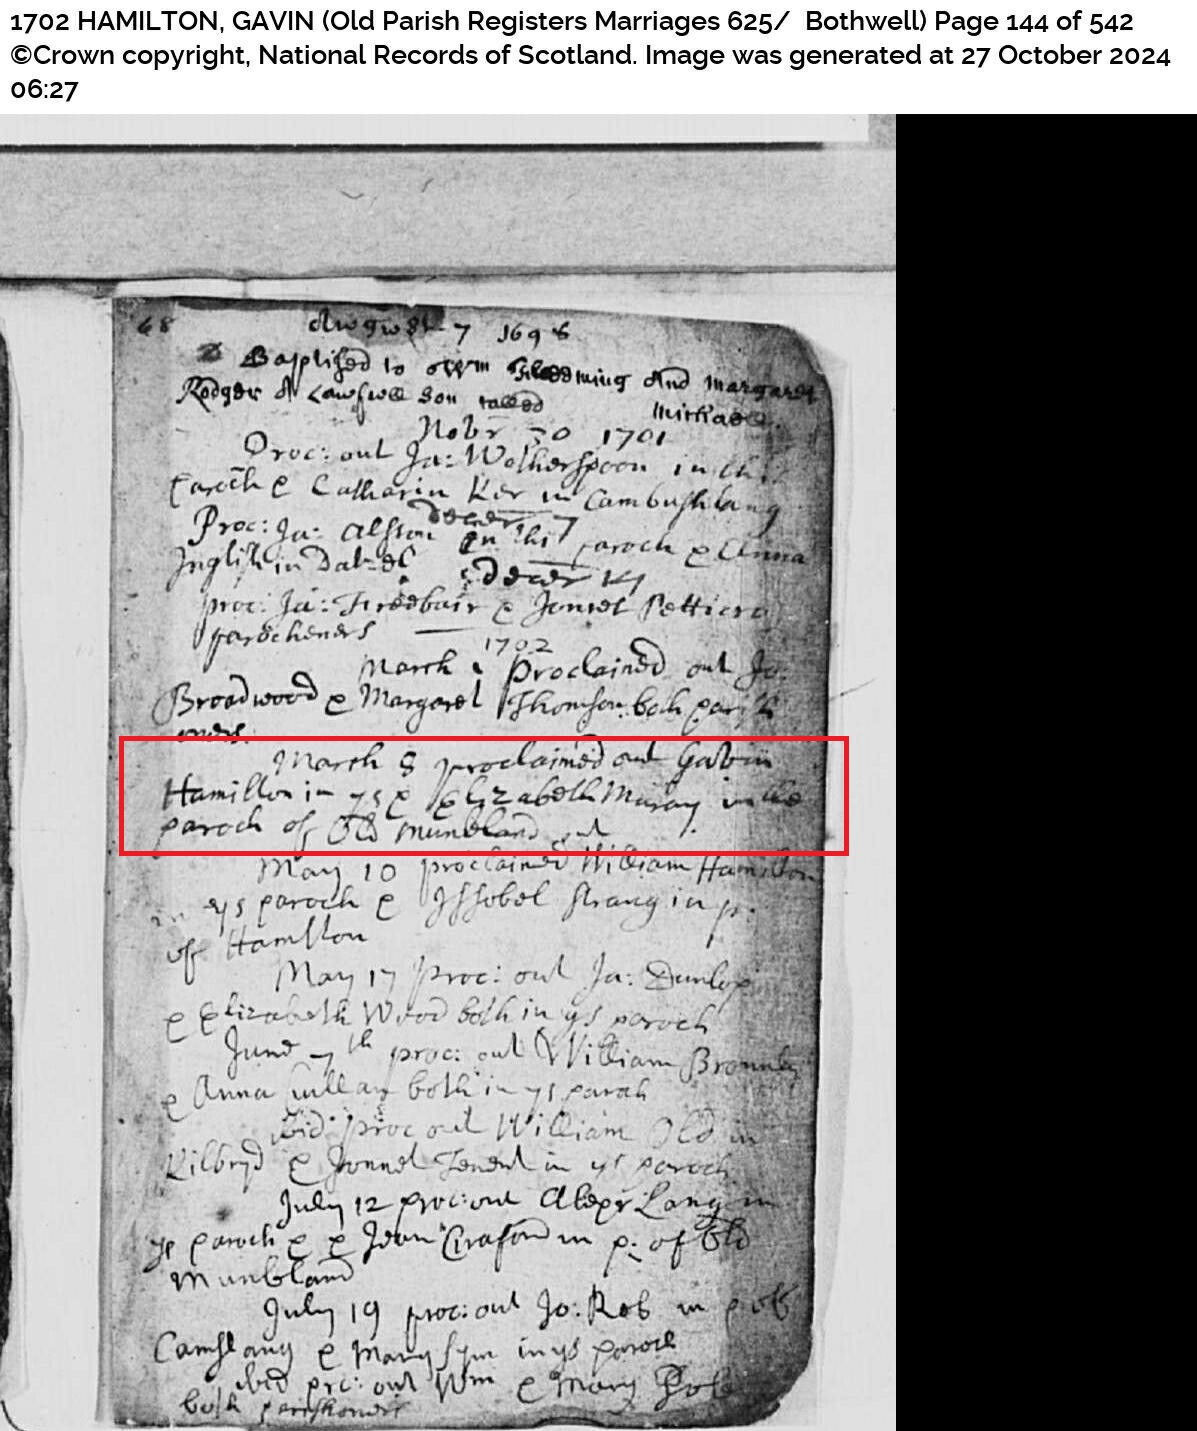 1702 HAMILTON, GAVIN (Old Parish Registers Marriages 625/ Bothwell) Page 144 of 542
©Crown copyright, National Records of Scotland. Image was generated at 27 October 2024
06:27
68
August 7 1698
Baptised to Wm Fleeming And Margaret
Rodger A Lawfwll Son called Michael
Nobr 30 1701
Proc: out Ja: Wotherspoon in this
paroch & Catharin Ker in Cambushlang
Decer 7
Proc: Ja: Alston in this paroch & Anna
Inglish in
Decer 14
proc: Ja: & Jonnet
parocheners
1702
March 1 Proclaimed out Jo:
Broadwood & Margaret Thomson both parish
oners.
March 8 proclaimed out Gavin
Hamilton in ys & Elizabeth Muray in the
paroch of Old Munkland
May 10 proclaimed William Hamilton
in ys paroch & Issobel Strang in p.
of Hamilton
May 17 Proc: out Ja: Dunlop
& Elizabeth Wood both in ys paroch
June 7th proc: out William
& Anna both in ys paroch
ibid: proc out William Old in
Kilbryd & Jonnet in ys paroch
July 12 proc: out Alexr Lang in
ys paroch & & Jean Craford in p: of Old
Munkland
July 19 proc: out Jo: Rob in p of
Camslang & Mary Sym in ys paroch
ibid prc: out Wm & Mary
both parishoners